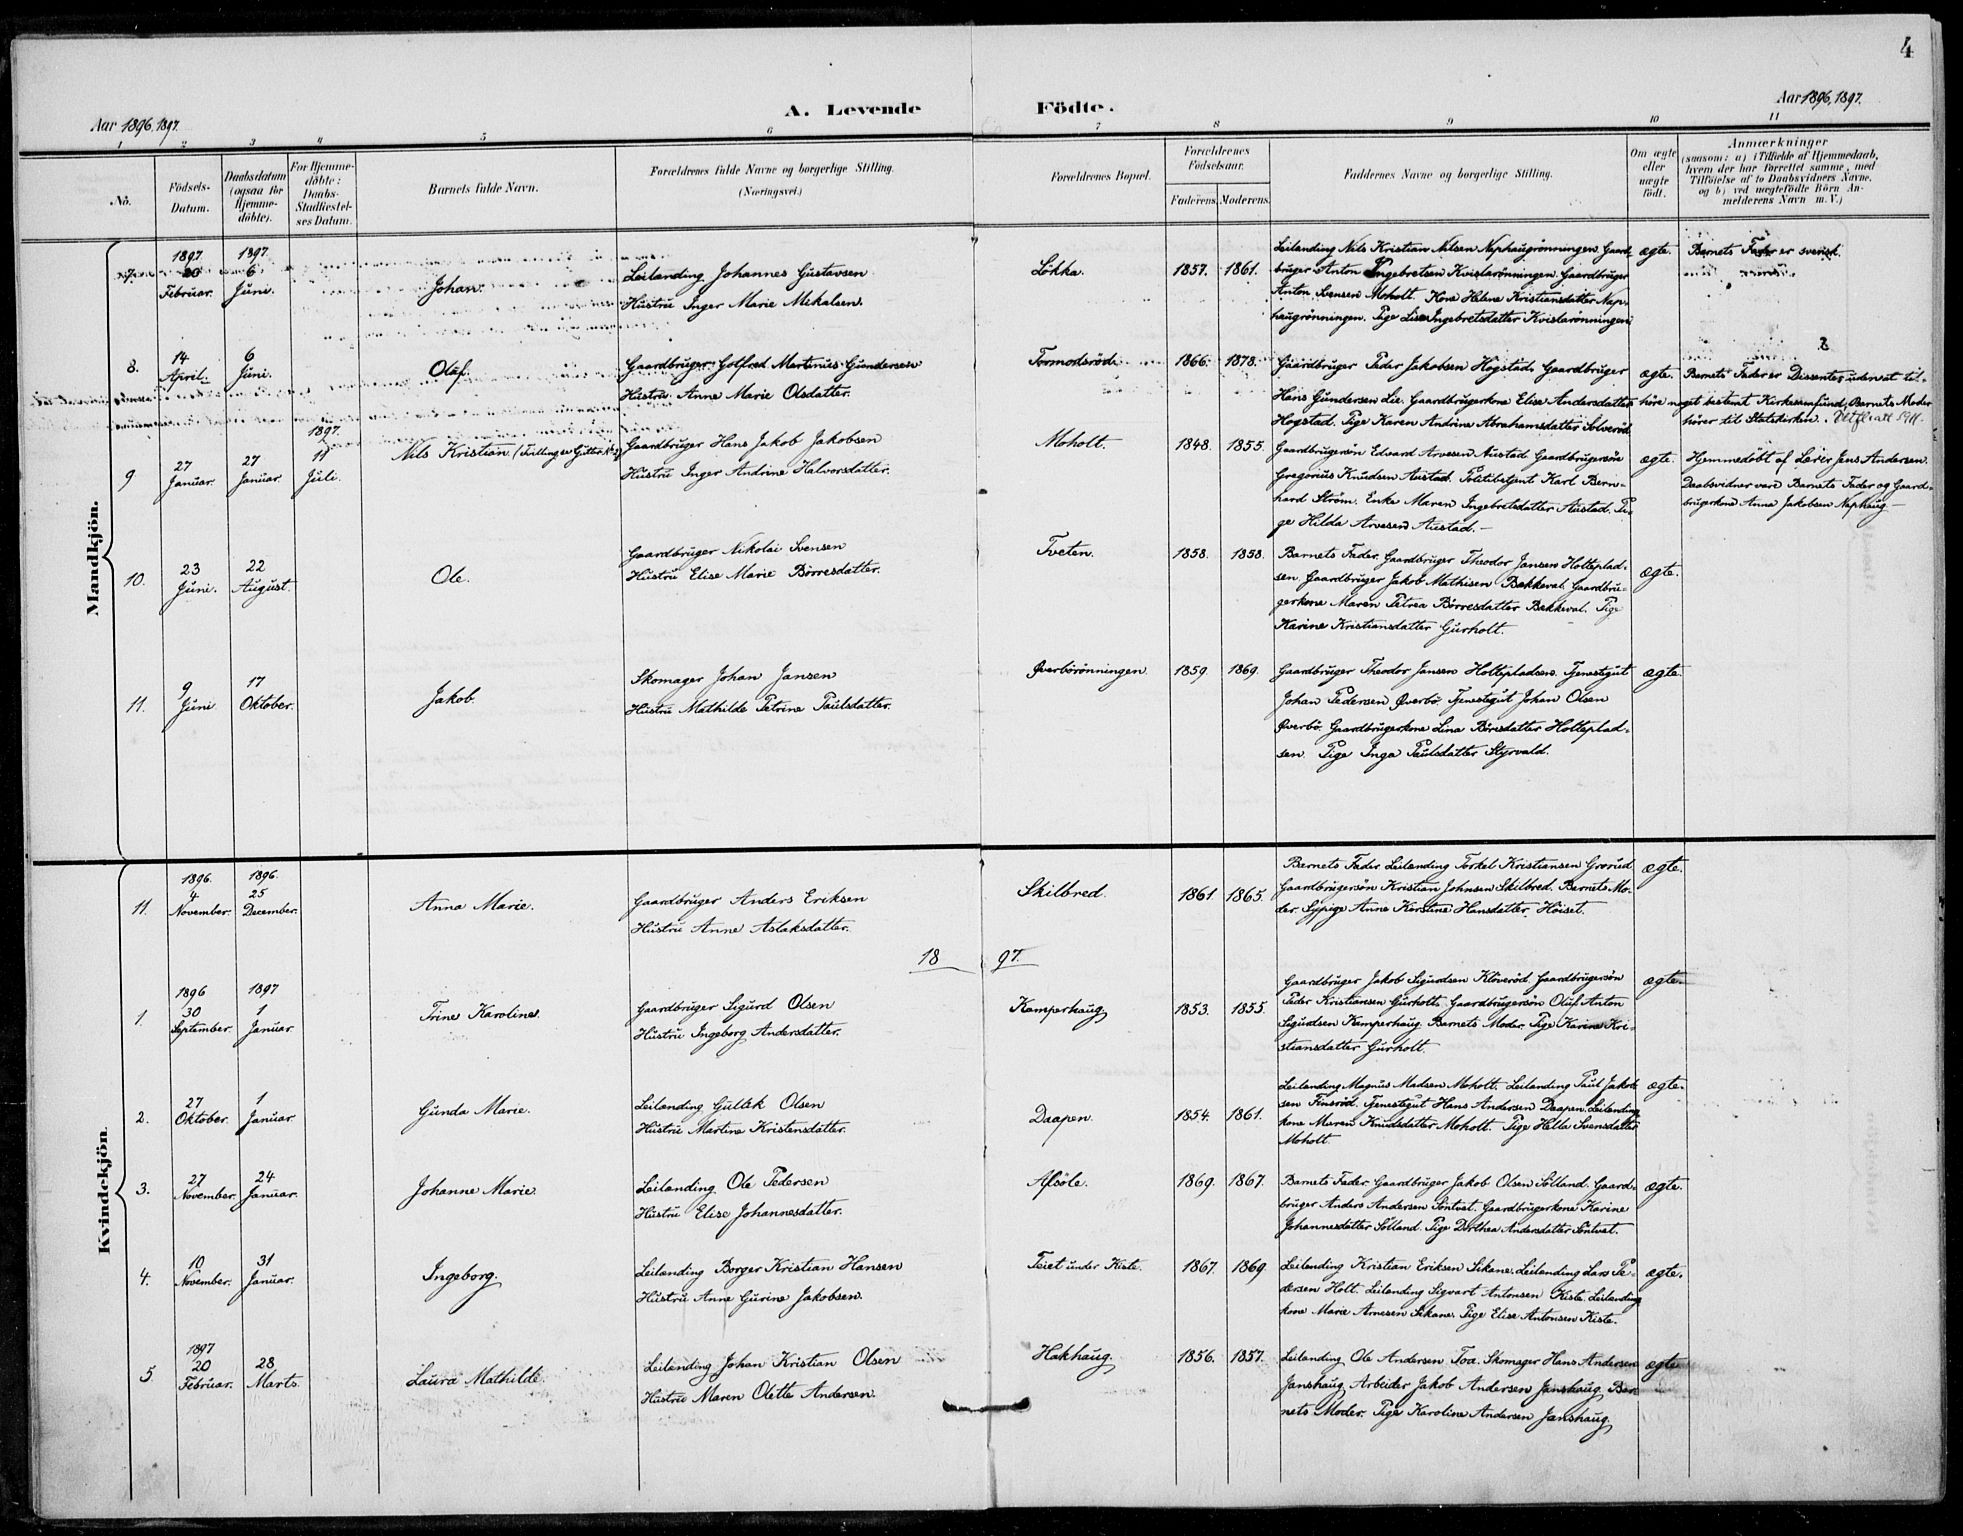 4
A. Levende Födte.
Aar 1896, 1897.
Aar 1896, 1897.
1 2 3 4 5 6 7 8 9 10 11
No.
Födsels-Datum.
Daabsdatum (ogsaa for Hjemme-döbte).
For Hjemme-döbte: Daabs-Stadfæstel-ses Datum.
Barnets fulde Navn.
Forældrenes fulde Navne og borgerlige Stilling.
(Næringsvei.)
Forældrenes Bopæl.
Forældrenes Födselsaar.
Faderens. Moderens.
Faddernes Navne og borgerlige Stilling.
Om ægte eller uægte födt.
Anmærkninger
(saasom: a) i Tilfælde af Hjemmedaab,
hvem der har forrettet samme, med
Tilföielse af to Daabsvidners Navne,
og b) ved uægtefödte Börn An-
melderens Navn m. V.)
Mandkjön.
7. 1897 20 Februar. 1897. 6 Juni.
Johan.
Leilænding Johannes Gustavsen
Hustru Inger Marie Mikalsen.
Løkka. 1857. 1861.
Leilænding Nils Kristian Nilsen Naphaugrønningen. Gaard-
bruger Anton Ingebretsen Kvistarønningen. Gaardbruger
Anton Svensen Moholt. Kone Helene Kristiansdatter Nap-
haugrønningen. Pige Lise Ingebretsdatter Kvistarønningen.
ægte. Barnets Fader er svensk.
8. 14 April. 6 Juni.
Oluf.
Gaardbruger Golfred Martinius Gundersen
Hustru Anne Marie Olsdatter.
Tormodsröd. 1866. 1878.
Gaardbruger Peder Jakobsen Hogstad. Gaardbruger
Hans Gundersen Lie. Gaardbrugerkone Elise Andersdatter
Hogstad. Pige Karen Andrine Abrahamsdatter Solveröd.
ægte. Barnets Fader er Dissenter, uden at til-
høre noget bestemt Kirkesamfund, Barnets Moder
hører til Statskirken.
9 27 Januar. 27 Januar. 1897. 11 Juli.
Nils Kristian (Tvilling
Gaardbruger Hans Jakob Jakobsen
Hustru Inger Andrine Halvorsdatter.
Moholt. 1848. 1855.
Gaardbrugersøn Edvard Arvesen Austad. Gaardbrugersøn
Gregorius Knudsen Austad. Politibetjent Karl Bern-
hard Strøm. Enke Maren Ingebretsdatter Austad. Pi-
ge Hilda Arvesen Austad.
ægte. Hjemmedøbt af Lærer Jens Andersen.
Daabsvidner vare Barnets Fader og Gaard-
brugerkone Anna Jakobsen Naphaug.
10. 23 Juni. 22 August.
Ole.
Gaardbruger Nikolai Svensen
Hustru Elise Marie Børresdatter.
Tveten. 1858. 1858.
Barnets Fader. Gaardbruger Theodor Jansen Holteplad-
sen. Gaardbruger Jakob Mathisen Bakkeval. Gaardbru-
gerkone Maren Petrea Børresdatter Bakkeval. Pige
Karine Kristiansdatter Gurholt.
ægte.
11. 9 Juni 17 Oktober.
Jakob.
Skomager Johan Jansen
Hustru Mathilde Petrine Paulsdatter.
Øverbörönningen. 1859. 1869.
Gaardbruger Theodor Jansen Holtepladsen. Tjenestegut
Johan Pedersen Øverbö. Tjenestegut Johan Olsen
Øverbö. Gaardbrugerkone Lina Börresdatter Holteplad-
sen. Pige Inga Paulsdatter Styrvold.
ægte.
Kvindekjön.
11. 1896. 4 November. 1896. 25 December.
Anna Marie.
Gaardbruger Anders Eriksen
Hustru Anne Aslaksdatter.
Skilbred. 1861. 1865.
Barnets Fader. Leilænding Torkel Kristiansen Grorud.
Gaardbrugersön Kristian Johnsen Skilbred. Barnets Mo-
der. Sypige Anne Karstine Hansdatter Höiset.
ægte.
18 97.
1. 1896 30 September. 1897 1 Januar.
Trine Karoline.
Gaardbruger Sigurd Olsen
Hustru Ingeborg Andersdatter.
Kamperhaug 1853. 1855.
Gaardbruger Jakob Sigurdsen Klöveröd. Gaardbrugersön
Peder Kristiansen Gurholt. Gaardbrugersön Oluf Anton
Sigurdsen Kamperhaug. Barnets Moder. Pige Karine Kri-
stiansdatter Gurholt.
ægte.
2. 27 Oktober. 1 Januar.
Gunda Marie.
Leilænding Gullik Olsen
Hustru Martine Kristensdatter.
Daapen. 1854. 1861.
Leilænding Magnus Madsen Moholt. Leilænding Paul Jakob-
sen Finsröd. Tjenestegut Hans Andersen Daapen. Leilænding-
kone Maren Knudsdatter Moholt. Pige Helle Svensdatter
Moholt.
ægte.
3. 27 November. 24 Januar.
Johanne Marie.
Leilænding Ole Pedersen
Hustru Elise Johannesdatter.
Afsöle. 1869. 1867.
Barnets Fader. Gaardbruger Jakob Olsen Sölland. Gaard-
bruger Anders Andersen Söntvet. Gaardbrugerkone Karine
Johannesdatter Sölland. Pige Dorthea Andersdatter Söntvet.
ægte.
4. 10 November. 31 Januar.
Ingeborg.
Leilænding Borger Kristian Hansen
Hustru Anne Gurine Jakobsen.
Teiet under Kiste. 1867. 1869.
Leilænding Kristian Eriksen Sikane. Leilænding Lars Pe-
dersen Holt. Leilænding Sigvart Antonsen Kiste. Leilænding-
kone Marie Arnesen Sikane. Pige Elise Antonsen Kiste.
ægte.
5 1897 20 Februar. 28 Marts.
Laura Mathilde.
Leilænding Johan Kristian Olsen
Hustru Maren Olette Andersen.
Hakhaug. 1856. 1857.
Leilænding Ole Andersen Toa. Skomager Hans Andersen
Janshaug. Arbeider Jakob Andersen Janshaug. Bar-
nets Moder. Pige Karoline Andersen Janshaug.
ægte